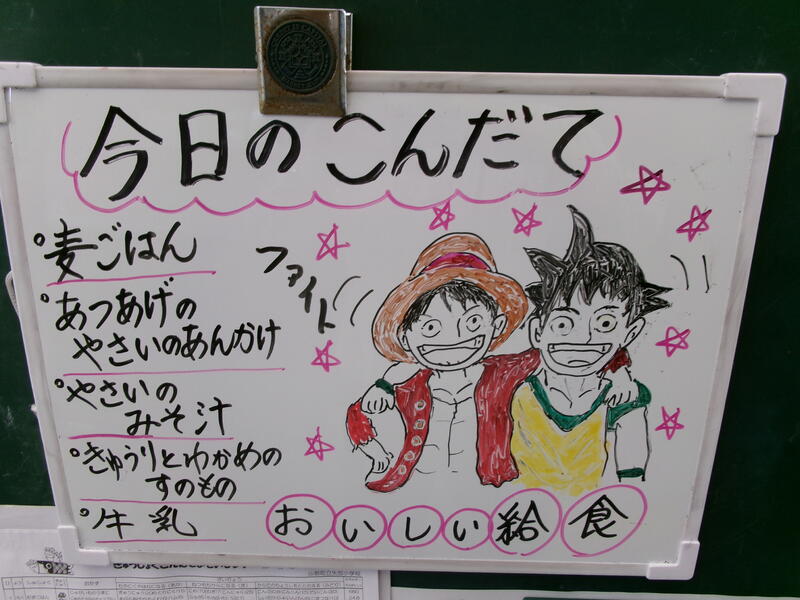 今日のこんだて
麦ごはん
あつあげの
やさいのあんかけ
やさいの
みそ汁
きゅうりとわかめの
すのもの
牛乳
ファイト
おいしい給食